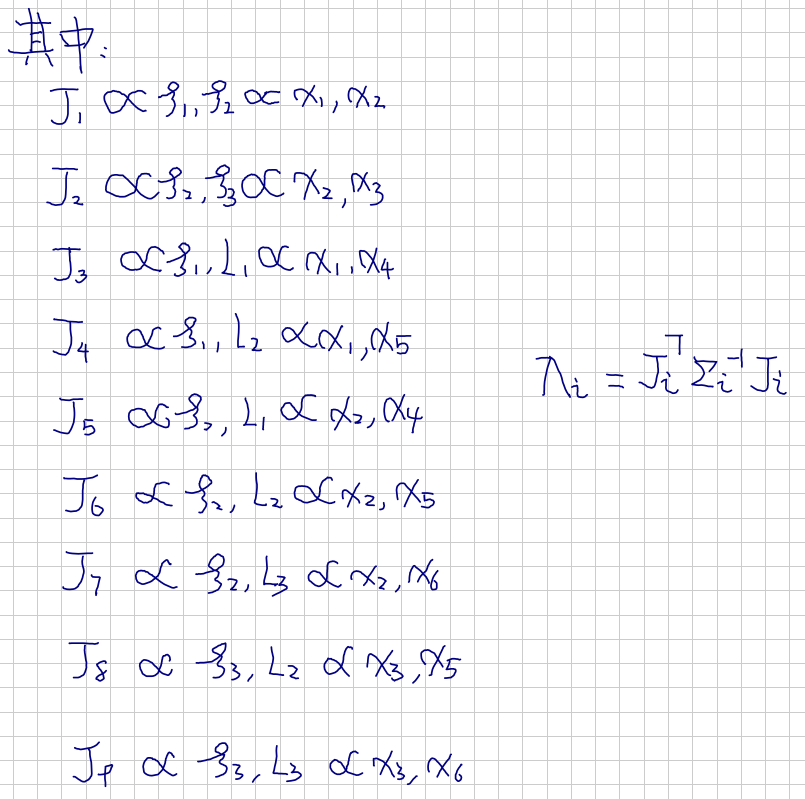 其中:
J₁ ∝ ξ₁, ξ₂ ∝ x₁, x₂
J₂ ∝ ξ₂, ξ₃ ∝ x₂, x₃
J₃ ∝ ξ₁, L₁ ∝ x₁, x₄
J₄ ∝ ξ₁, L₂ ∝ x₁, x₅
Λᵢ = Jᵢᵀ Σᵢ⁻¹ Jᵢ
J₅ ∝ ξ₂, L₁ ∝ x₂, x₄
J₆ ∝ ξ₂, L₂ ∝ x₂, x₅
J₇ ∝ ξ₂, L₃ ∝ x₂, x₆
J₈ ∝ ξ₃, L₂ ∝ x₃, x₅
J₉ ∝ ξ₃, L₃ ∝ x₃, x₆